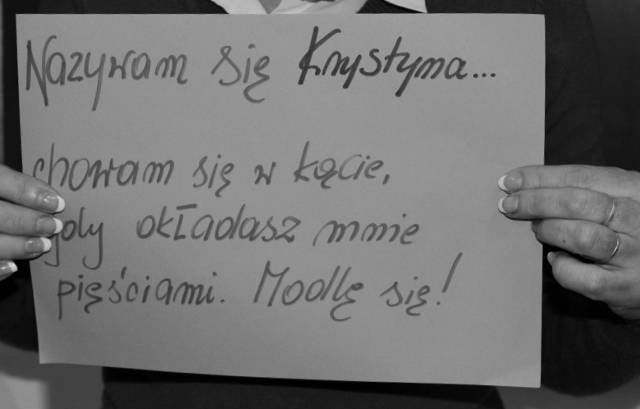 Nazywam się Krystyna...
chowam się w kącie,
gdy okładasz mnie
pięściami. Modlę się!